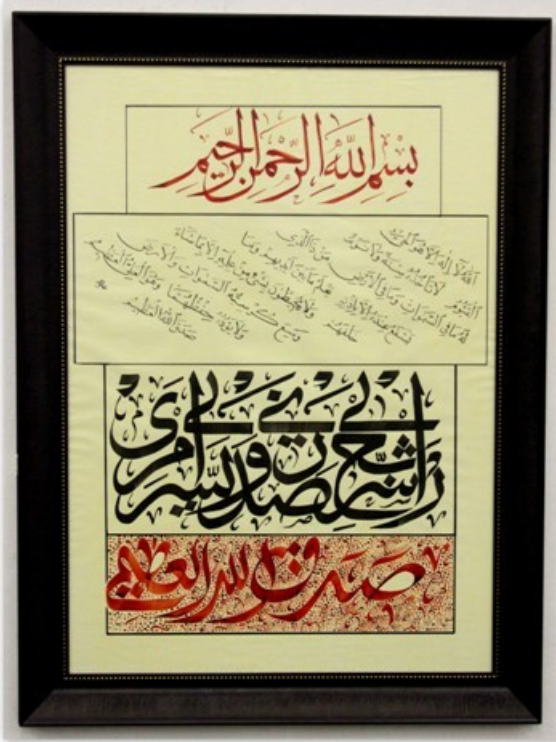 بِسْمِ اللَّهِ الرَّحْمَنِ الرَّحِيمِ
الله لا إله إلا هو الحي
القيوم لا تأخذه سنة ولا نوم
له ما في السموات وما في الأرض من ذا الذي
يشفع عنده إلا بإذنه يعلم ما بين أيديهم وما
خلفهم ولا يحيطون بشيء من علمه إلا بما شاء
وسع كرسيه السموات والأرض
ولا يؤده حفظهما وهو العلي العظيم
صدق الله العظيم
رب اشرح لي صدري ويسر لي أمري
صدق الله العظيم